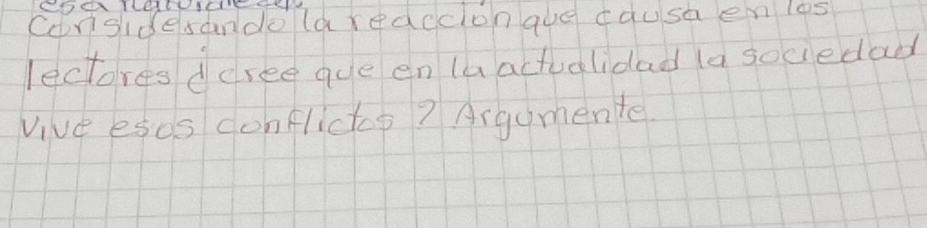 Considerando la reacción que causa en los
lectores ¿cree que en la actualidad la sociedad
vive esos conflictos? Argumente.